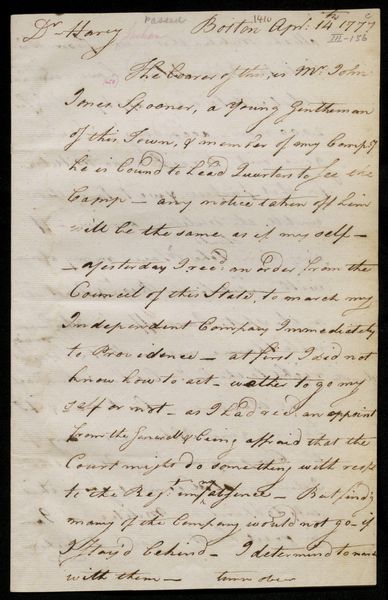 Passed
1410
Dr Harry Boston Apr. 14th 1777
III-156
The bearer of this, is Mr. John
Jones Spooner, a Young Gentleman
of this Town, & member of my Compy
he is bound to head Quarters to See the
Camp — any notice taken off him
will be the same as if my self —
— yesterday I recd. an order from the
Council of this State, to march my
Independent Company Immediately
to Providence — at first I did not
know how to act — wether to go my
self or not — as I had recd. an appoint
from the Generall & being affraid that the
Court might do something with resp
to the Regt. in my absence — But findg
many of the Company would not go — if
I stay'd behind — I determind to march
with them — turn over